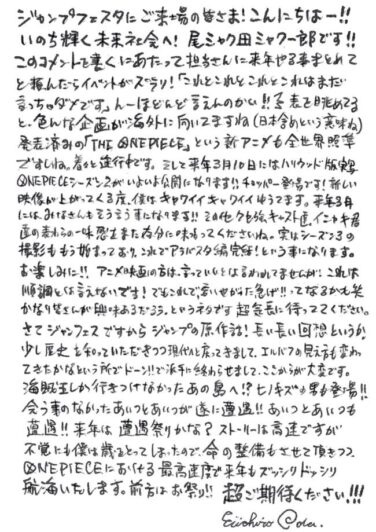 ジャンプフェスタにご来場の皆さま!こんにちはー!!
いのち輝く未来社会へ!尾ミャク田ミャク一郎です!!
このコメントを書くにあたって担当さんに来年やる事まとめて
と頼んだらイベントがズラリ!「これとこれとこれとこれはまだ
言っちゃダメです」んーほとんど言えんのかい!!予表を眺めてる
と、色んな企画が海外に向いてますね(日本含めという意味ね)
発表済みの「THE ONE PIECE」という新アニメも全世界照準
ですしね。着々と進行中です。そして来年3月10日にはハリウッド版実写
ONE PIECEシーズン2がいよいよ公開になります!!チョッパー登場です!新しい
映像が上がってくる度、僕はキャワイイキャワイイゆうてます。来年3月
には、みなさんも言う事になります!!この他も強キャスト達、イニャキ君
達の麦わらの一味感をまた存分に味わってくださいね。実はシーズン3の
撮影ももう始まっており、これでアラバスタ編完結!という事になります。
お楽しみに!!アニメ映画の方は、言っていいとは言われてませんが:これは
順調とは言えないです!でもこれで言いやがった急げ!!ってなるかも笑
かなり皆さんが興味あるだろう、というネタです超気長に待っててください。
さてジャンフェスですからジャンプの原作話!長い長い回想というか
少し歴史を知っていただきつつ現代に戻ってきまして、エルバフの見え方も変わ
ってきたかなという所でドーン!!で派手に終わらせまして、ここからが大変です。
海賊王しか行きつけなかったあの島へ!?ヒノキズの男も登場!!
会う事のなかったあいつとあいつが遂に遭遇!!あいつとあいつも
遭遇!!来年は遭遇祭りかな?ストーリーは高速ですが
不覚にも僕は歳をとってしまったので、命の整備もさせて頂きつつ、
ONE PIECEにおける最高速度で来年もズッシリドッシリ
航海いたします。前方はお祭り!!超ご期待ください!!!
Eiichiro Oda.